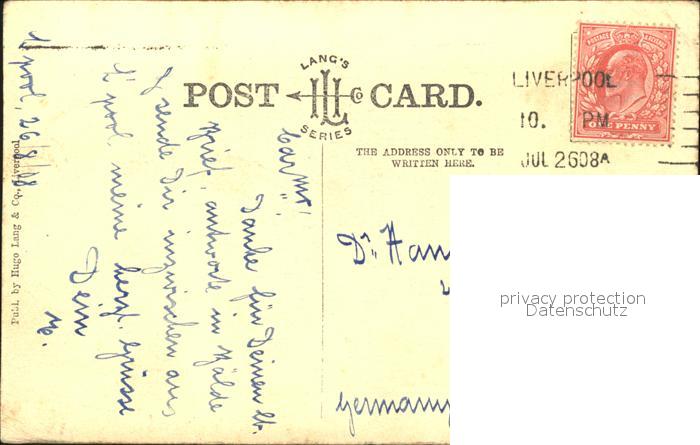 LANG'S
POST CARD.
HL Co
SERIES
THE ADDRESS ONLY TO BE
WRITTEN HERE.
POSTAGE REVENUE
ONE PENNY
LIVERPOOL
10. PM
JUL 26 08 A
Publ. by Hugo Lang & Co., Liverpool
L'pool, 26/8/08
Danke für Deinen lb.
Brief, antworte in Bälde
& sende Dir inzwischen aus
L'pool meine herzl. Grüsse
Dein
Dr. Han
Germany
privacy protection
Datenschutz